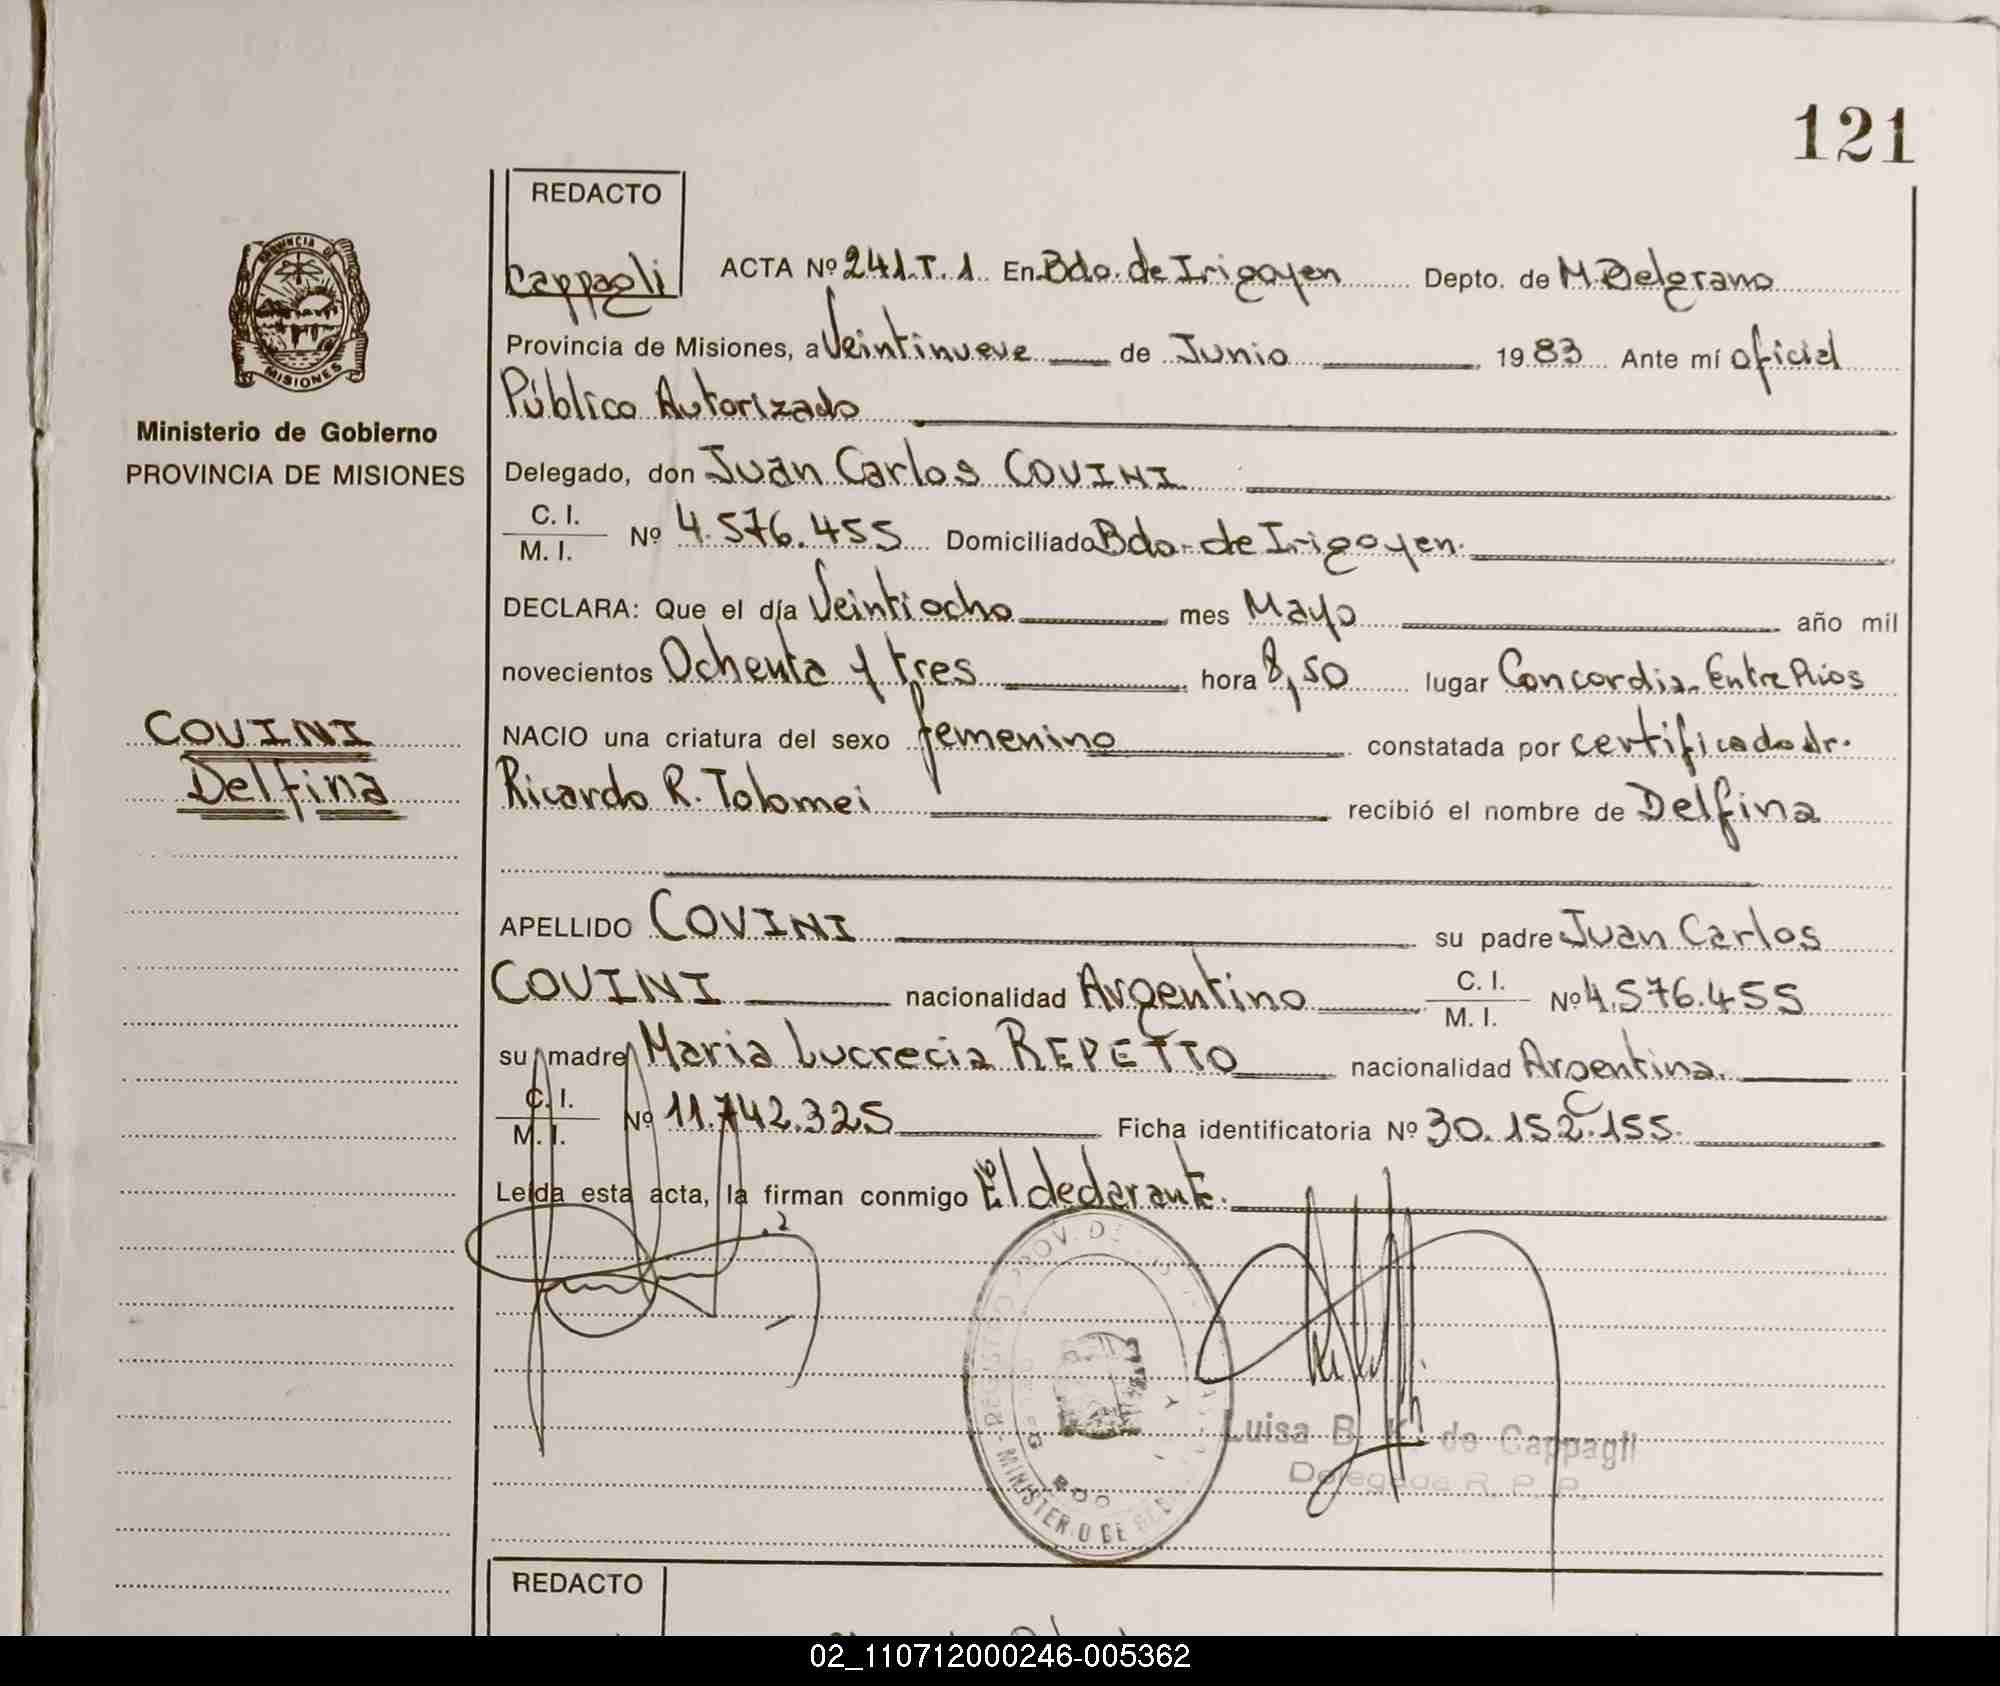 121
REDACTO
Cappagli
ACTA Nº 241.T.1. En Bdo. de Irigoyen Depto. de M. Belgrano
Provincia de Misiones, a Veintinueve de Junio 1983 Ante mí oficial
Público Autorizado
PROVINCIA DE
MISIONES
Ministerio de Gobierno
PROVINCIA DE MISIONES
Delegado, don Juan Carlos COVINI
C. I.
M. I. Nº 4.576.455 Domiciliado Bdo. de Irigoyen.
DECLARA: Que el día Veintiocho mes Mayo año mil
novecientos Ochenta y tres hora 8,50 lugar Concordia. Entre Ríos
COVINI
Delfina
NACIO una criatura del sexo femenino constatada por certificado dr.
Ricardo R. Tolomei recibió el nombre de Delfina
APELLIDO COVINI su padre Juan Carlos
COVINI nacionalidad Argentino C. I.
M. I. Nº 4.576.455
su madre Maria Lucrecia REPETTO nacionalidad Argentina.
C. I.
M. I. Nº 11.742.325 Ficha identificatoria Nº 30.152.155.
Leída esta acta, la firman conmigo El declarante.
PROV. DE
MINISTERIO DE
BDO
Luisa B. K. de Cappagli
Delegada R. P. P.
REDACTO
02_110712000246-005362